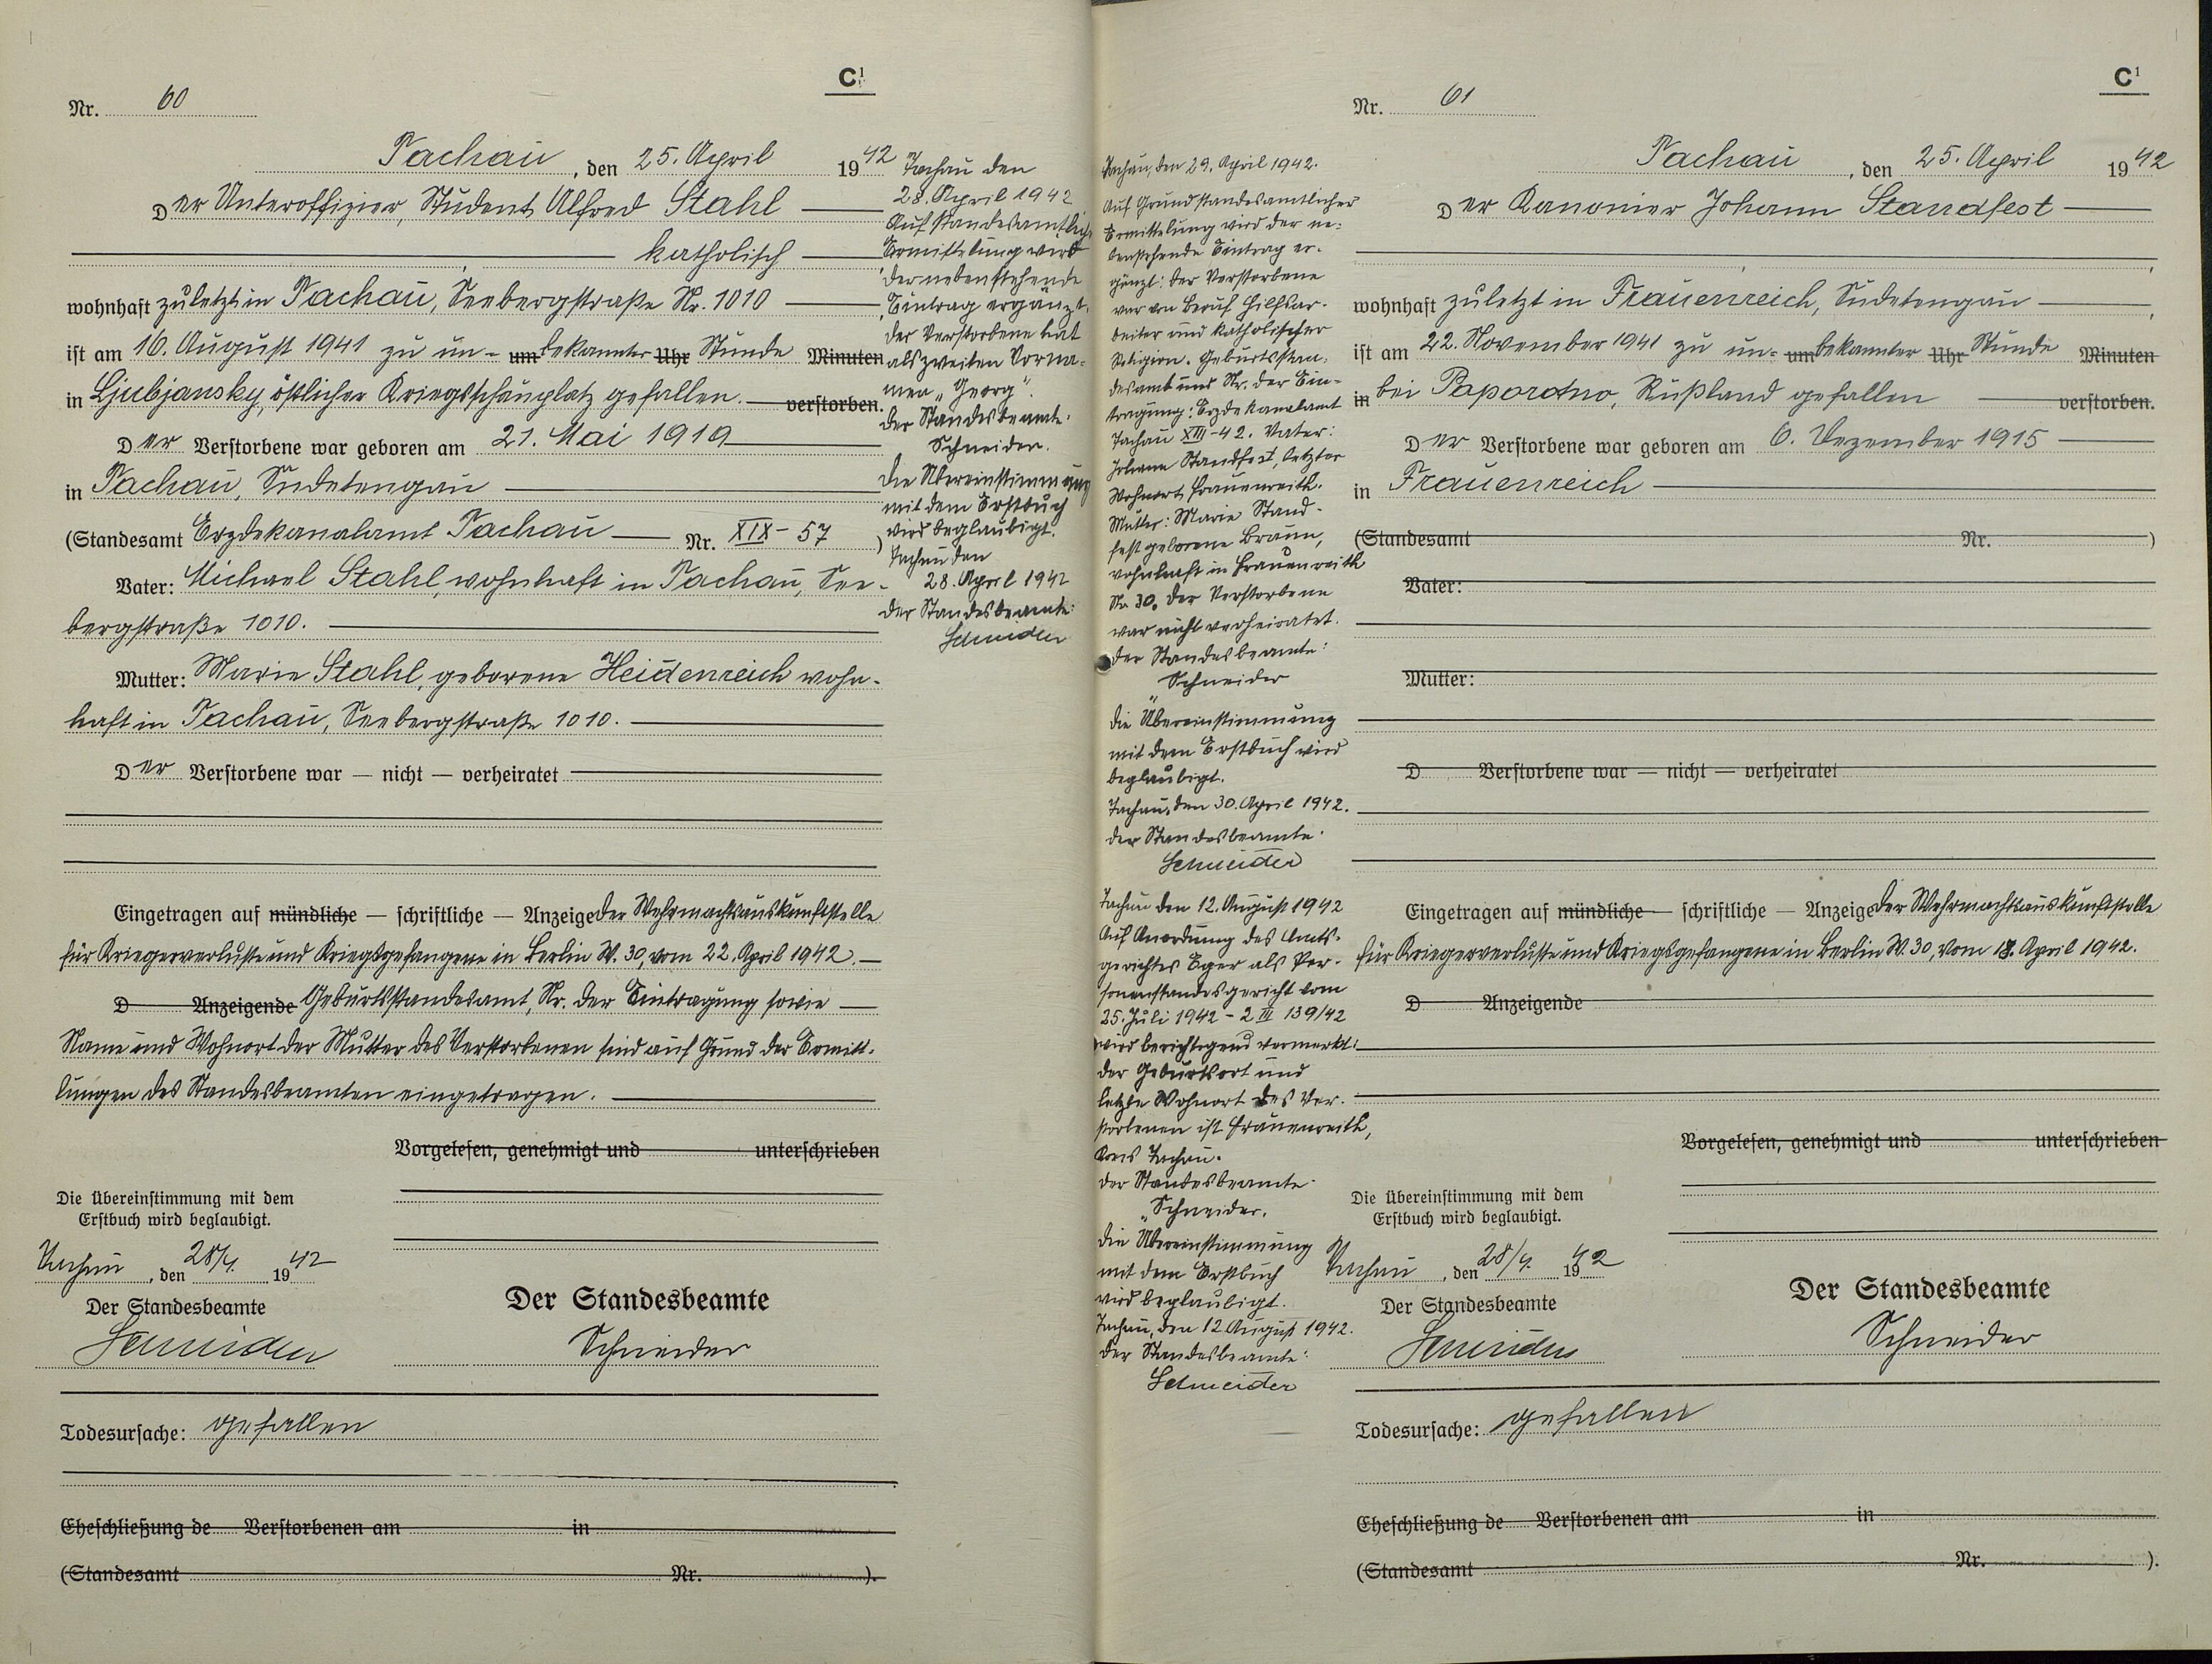 C¹
Nr. 60
Tachau, den 25. April 1942
Der Unteroffizier, Student Alfred Stahl
katholisch
wohnhaft zuletzt in Tachau, Seebergstraße Nr. 1010
ist am 16. August 1941 zu un- um bekannter Uhr Stunde Minuten
in Ljubjansky, östlicher Kriegsschauplatz gefallen. verstorben.
Der Verstorbene war geboren am 21. Mai 1919
in Tachau, Sudetengau
(Standesamt Erzdekanalamt Tachau Nr. XIX - 57)
Vater: Michael Stahl, wohnhaft in Tachau, See-
bergstraße 1010.
Mutter: Marie Stahl, geborene Heidenreich wohn-
haft in Tachau, Seebergstraße 1010.
Der Verstorbene war — nicht — verheiratet
Eingetragen auf mündliche — schriftliche — Anzeige der Wehrmachtsauskunftstelle
für Kriegerverluste und Kriegsgefangene in Berlin W. 30, vom 22. April 1942.
D Anzeigende Geburtsstandesamt, Nr. der Eintragung sowie
Name und Wohnort der Mutter des Verstorbenen sind auf Grund der Ermitt-
lungen des Standesbeamten eingetragen.
Vorgelesen, genehmigt und unterschrieben
Die Übereinstimmung mit dem
Erstbuch wird beglaubigt.
Tachau, den 28/4. 1942
Der Standesbeamte
Schneider
Der Standesbeamte
Schneider
Todesursache: gefallen
Eheschließung de Verstorbenen am in
(Standesamt Nr. ).
Tachau den
28. April 1942
Auf standesamtliche
Ermittelung wird
der nebenstehende
Eintrag ergänzt.
der Verstorbene hat
als zweiten Vorna-
men „Georg".
Der Standesbeamte:
Schneider.
Die Übereinstimmung
mit dem Erstbuch
wird beglaubigt.
Tachau den
28. April 1942
Der Standesbeamte:
Schneider
C¹
Nr. 61
Tachau, den 25. April 1942
Der Kanonier Johann Standfest
wohnhaft zuletzt in Frauenreich, Sudetengau
ist am 22. November 1941 zu un- um bekannter Uhr Stunde Minuten
in bei Paporotno, Rußland gefallen verstorben.
Der Verstorbene war geboren am 6. Dezember 1915
in Frauenreich
(Standesamt Nr. )
Vater:
Mutter:
D Verstorbene war — nicht — verheiratet
Eingetragen auf mündliche — schriftliche — Anzeige der Wehrmachtsauskunftstelle
für Kriegerverluste und Kriegsgefangene in Berlin W. 30, vom 18. April 1942.
D Anzeigende
Vorgelesen, genehmigt und unterschrieben
Die Übereinstimmung mit dem
Erstbuch wird beglaubigt.
Tachau, den 28/4. 1942
Der Standesbeamte
Schneider
Der Standesbeamte
Schneider
Todesursache: gefallen
Eheschließung de Verstorbenen am in
(Standesamt Nr. ).
Tachau, den 29. April 1942.
Auf Grund standesamtlicher
Ermittelung wird der ne-
benstehende Eintrag er-
gänzt: der Verstorbene
war von Beruf Hilfsar-
beiter und katholischer
Religion. Geburtsstan-
desamt und Nr. der Ein-
tragung: Erzdekanalamt
Tachau XIII-42. Vater:
Johann Standfest, letzter
Wohnort Frauenreith.
Mutter: Marie Stand-
fest geborene Braun,
wohnhaft in Frauenreith
Nr. 30. Der Verstorbene
war nicht verheiratet.
Der Standesbeamte:
Schneider
Die Übereinstimmung
mit dem Erstbuch wird
beglaubigt.
Tachau, den 30. April 1942.
Der Standesbeamte:
Schneider
Tachau den 12. August 1942
Auf Anordnung des Amts-
gerichtes Eger als Per-
sonenstandsgericht vom
25. Juli 1942 - 2 III 139/42
wird berichtigend vermerkt:
der Geburtsort und
letzte Wohnort des Ver-
storbenen ist Frauenreith,
Kreis Tachau.
Der Standesbeamte
Schneider.
Die Übereinstimmung
mit dem Erstbuch
wird beglaubigt.
Tachau, den 12. August 1942.
Der Standesbeamte:
Schneider